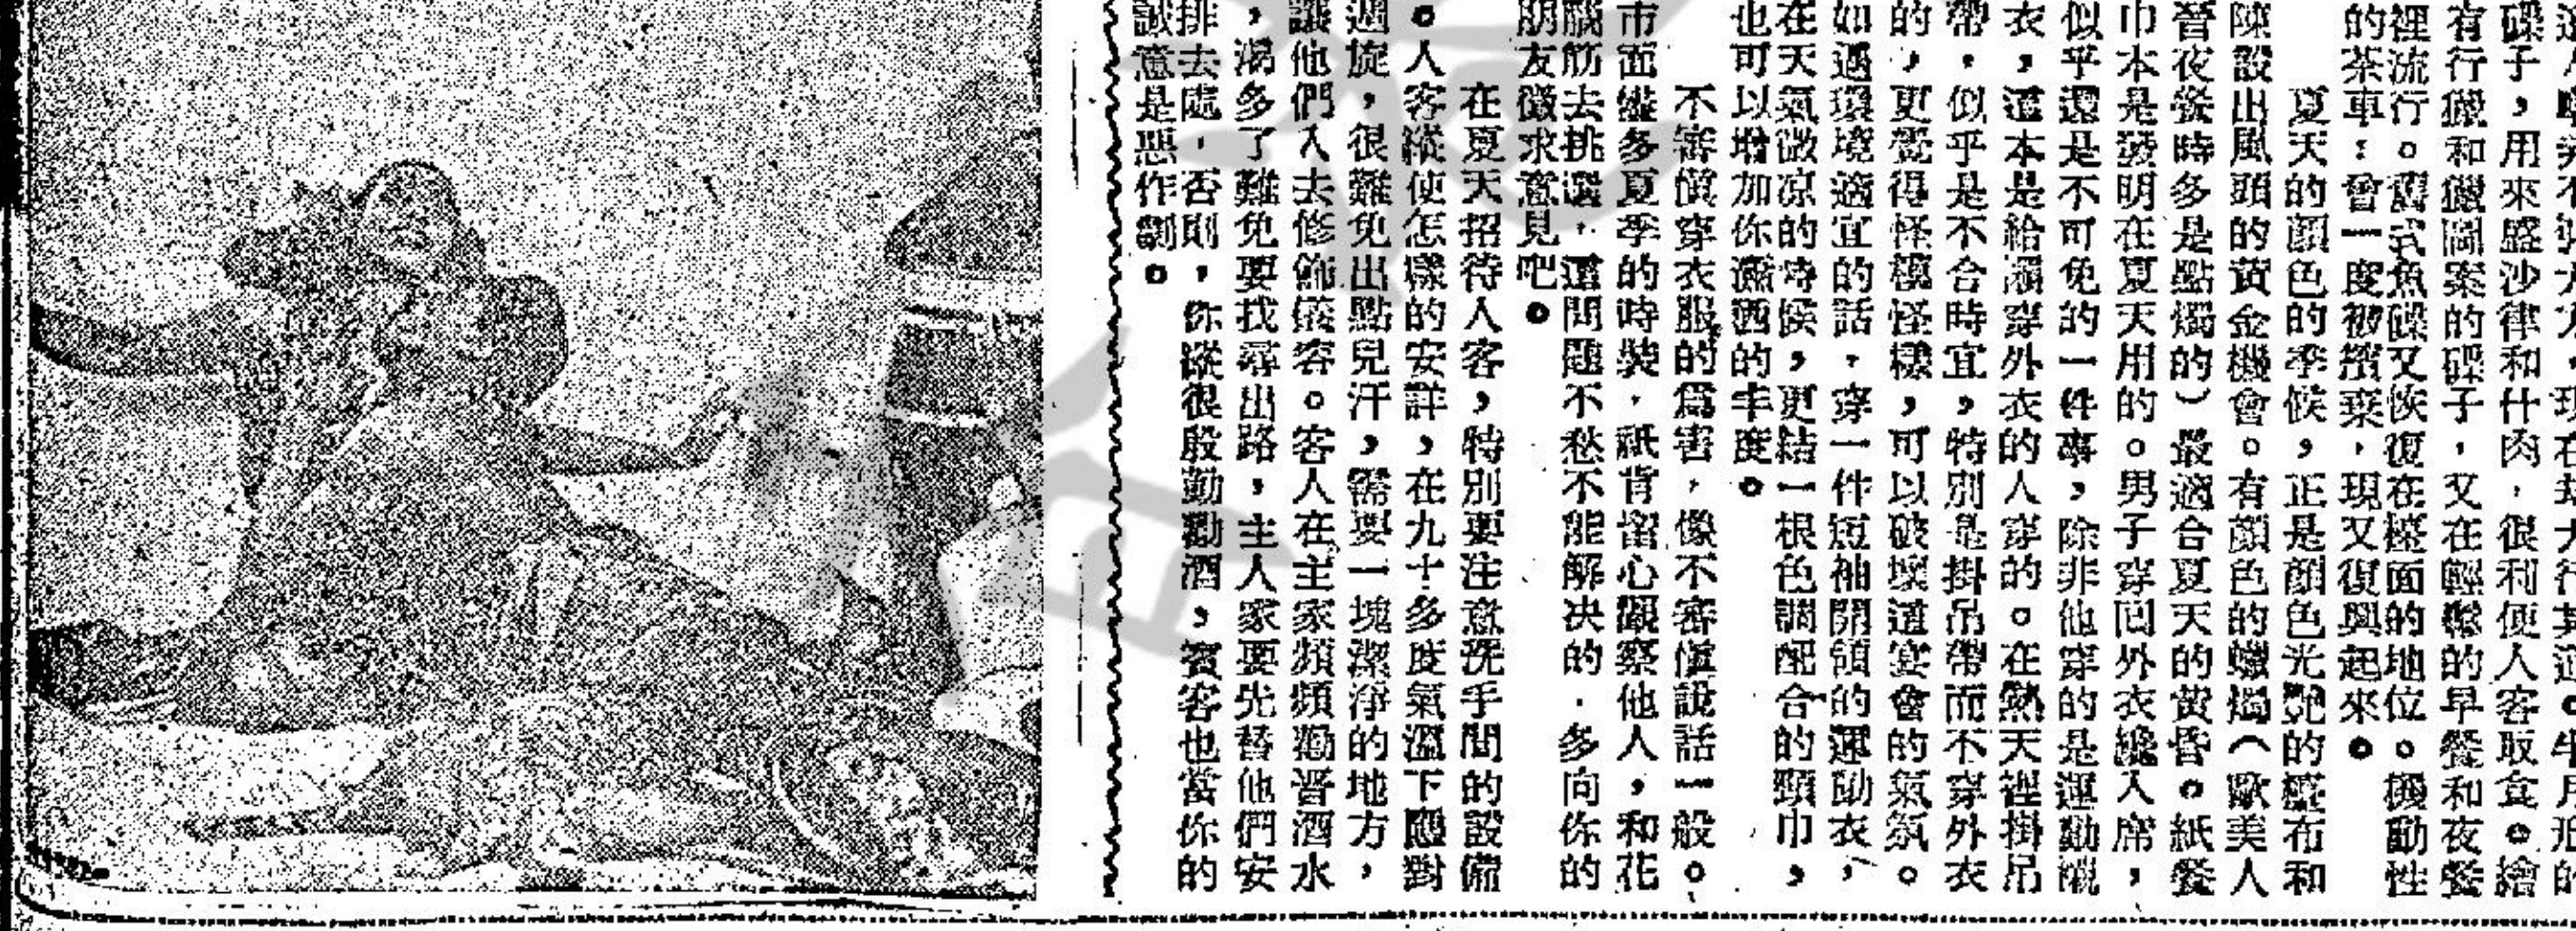 碟子，用來盛沙律和什肉，很利便人客取食。繪
有行獵和獵圖案的碟子，又在輕鬆的早餐和夜餐
裡流行。舊式魚碟又恢復在檯面的地位。機動性
的茶車：曾一度被擯棄，現又復興起來。
夏天的顏色的季候，正是顏色光艷的檯布和
陳設出風頭的黃金機會。有顏色的蠟燭（歐美人
晉夜餐時多是點燭的）最適合夏天的黃昏。紙餐
巾本是發明在夏天用的。男子穿回外衣纔入席，
似乎還是不可免的一件事，除非他穿的是運動襯
衣，這本是給須穿外衣的人穿的。在熱天裡掛吊
帶，似乎是不合時宜，特別是掛吊帶而不穿外衣
的，更覺得怪模怪樣，可以破壞這宴會的氣氛。
如遇環境適宜的話，穿一件短袖開領的運動衣，
在天氣微凉的時候，更結一根色調配合的頸巾，
也可以增加你瀟洒的丰度。
不審慎穿衣服的為害，像不審慎說話一般。
市面縱多夏季的時裝，祇肯留心觀察他人，和花
腦筋去挑選，這問題不愁不能解決的，多向你的
朋友徵求意見吧。
在夏天招待人客，特別要注意洗手間的設備
。人客縱使怎樣的安詳，在九十多度氣溫下應對
週旋，很難免出點兒汗，需要一塊潔淨的地方，
讓他們入去修飾儀容。客人在主家頻頻勸晋酒水
，渴多了難免要找尋出路，主人家要先替他們安
排去處，否則，你縱很殷勤勸酒，賓客也當你的
誠意是惡作劇。